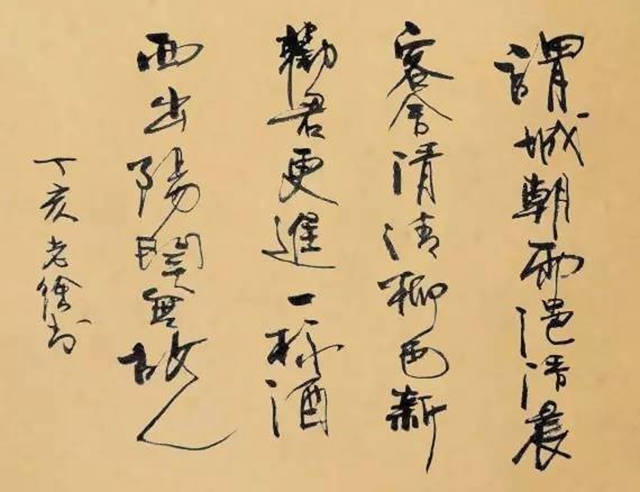 謂城朝雨浥清晨
客舍清清柳色新
勸君更進一杯酒
西出陽関無故人
丁亥老书